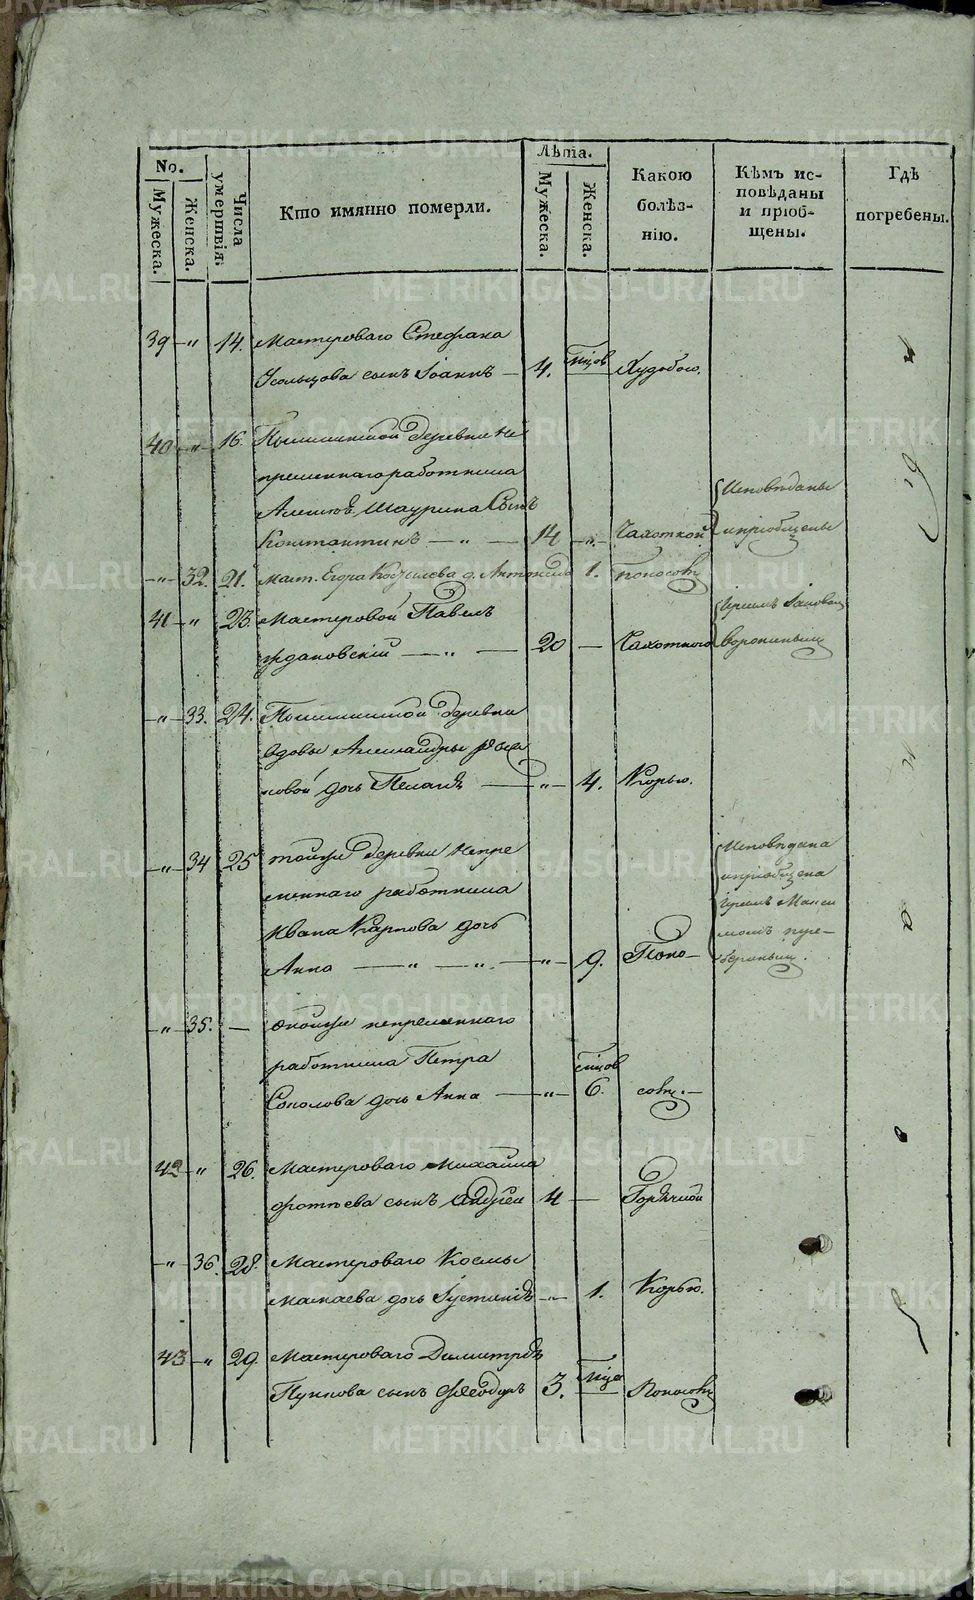 No.
Мужеска.
Женска.
Числа умертвія.
Кто имянно померли.
Лѣта.
Мужеска.
Женска.
Какою болѣз-
нію.
Кѣмъ ис-
повѣданы
и пріоб-
щены.
Гдѣ
погребены.
39 " 14. Мастероваго Стефана
Усольцова сынъ Іоаннъ — 4. мцов Худобою.
40 " 16. Пышминской деревни не
премѣннаго работника
Шаурина Сынъ
Константинъ — " — 14 — " — Чахоткой Исповѣданы и пріобщены
— " — 32. 21. маст. Егора д. 1. Поносом
41 — " 23. Мастеровой Павелъ
Ждановскій — " — 20 — Чахоткою Іереемъ Іаковом Ворониным
— " — 33. 24. Пышминской деревни
вдовы Александры
дочь Пелагія — " — 4. Корью.
— " — 34 25 тойже деревни Непре
меннаго работника
Ивана Карпова дочь
Анна — " — " — " — 9. Поно-
Исповѣдана
и пріобщена
Іереемъ Макси
момъ
— " — 35. — онойже непременнаго
работника Петра
Соколова дочь Анна — " — 6. мцов совъ. —
42 — " 26. Мастероваго Михаила
сынъ Андрей 4 — Горячкой
— " — 36. 28. Мастероваго Космы
Мамаева дочь Іустинія — " — 1. Корью.
43 — " 29. Мастероваго Димитрія
Пункова сынъ Ѳеодулъ 3. мца Поносом
METRIKI.GASO-URAL.RU